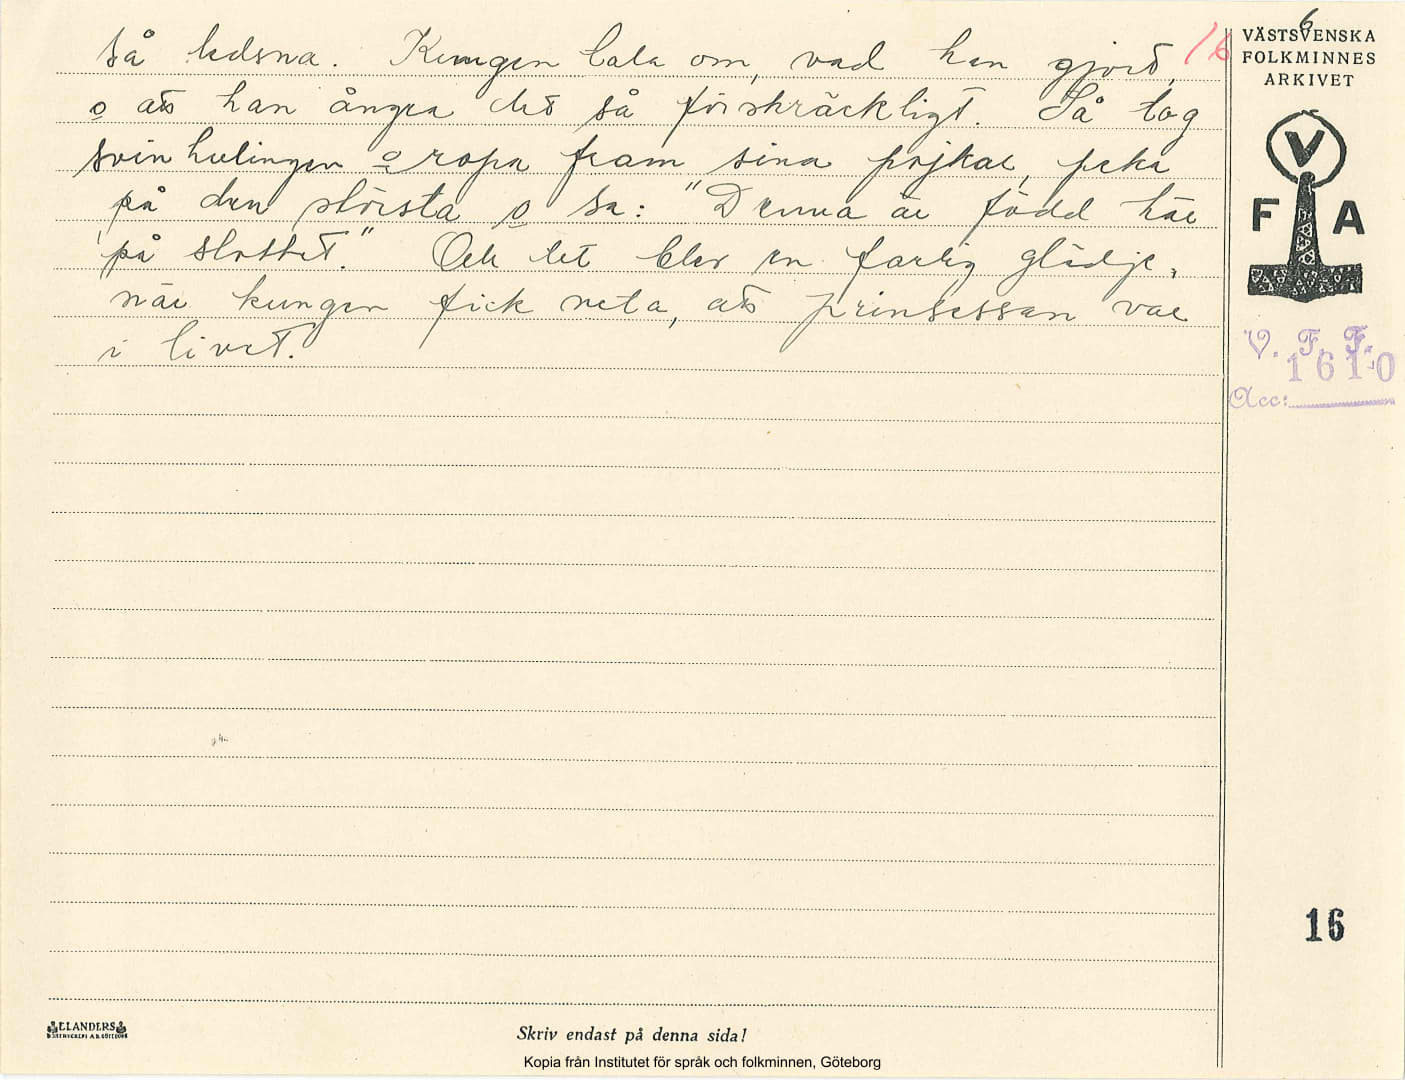 så ledsna. Kungen tala om, vad han gjort,
o att han ångra det så förskräckligt. Så tog
svinhulingen o ropa fram sina pojkar, peka
på den största o sa: "Denna är född här
på slottet." Och det blev en farlig glädje,
när kungen fick veta, att prinsessan var
i livet.
16
6
VÄSTSVENSKA
FOLKMINNES
ARKIVET
V
F A
V. F. F.
1610
Acc:
16
ELANDERS
Skriv endast på denna sida!
Kopia från Institutet för språk och folkminnen, Göteborg